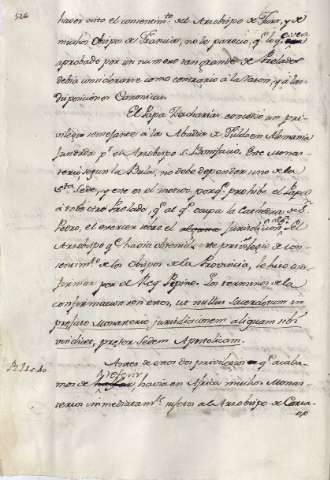 526
haver visto el consentim.to del Arzobispo de Turs, y de
muchos Obispos de Francia, no les pareció, q.e lo q.e era
aprobado por un numero tan grande de Prelados
debia considerarse como contrario à la razon, y à las
disposiciones Canonicas.
El Papa Zacharias concedio un pri-
vilegio semejante à la Abadia de Fulda en Alemania
fundada p.r el Arzobispo S. Bonifacio. Este Monas-
terio segun la Bula, no debe depender sino de la
S.ta Sede, y este es el motivo porq.e prohibe el Papa
à todo otro Prelado, q.e al q.e ocupa la Cathedra de S.n
Pedro, el exercer sobre el alg.a jurisdiccion. El
Arzobispo q.e havia obtenido este privilegio de con-
sentim.to de los Obispos de la Provincia, le hizo con-
firmar por el Rey Pepino. Los terminos de la
confirmacion son estos, ut nullus Sacerdotum in
prefato Monasterio jurisdictionem aliquam sibi
vindicet, preter Sedem Apostolicam.
Antes de estos dos privilegios q.e acaba-
mos de referir, havia en Africa muchos Monas-
terios inmediatam.te sujetos al Arzobispo de Carta-
go